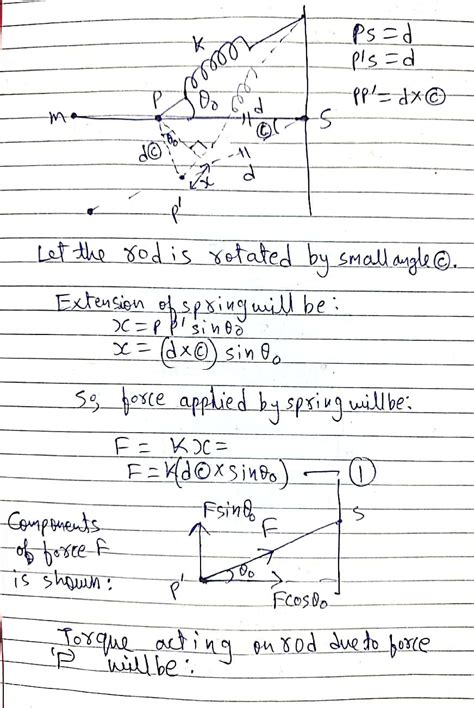 K
PS = d
P'S = d
PP' = d×©
P
θ₀
m
d
S
©
θ₀
d©
x
d
P'
Let the rod is rotated by small angle ©.
Extension of spring will be:
x = PP' sinθ₀
x = (d×©) sinθ₀
So, force applied by spring will be:
F = Kx =
F = K(d©×sinθ₀) — ①
Components
of force F
is shown:
Fsinθ₀
F
S
θ₀
P'
Fcosθ₀
Torque acting on rod due to force
'F' will be: